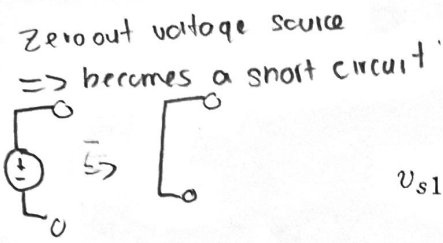 Zero out voltage source
=> becomes a short circuit
+
-
=>
v_{s1}